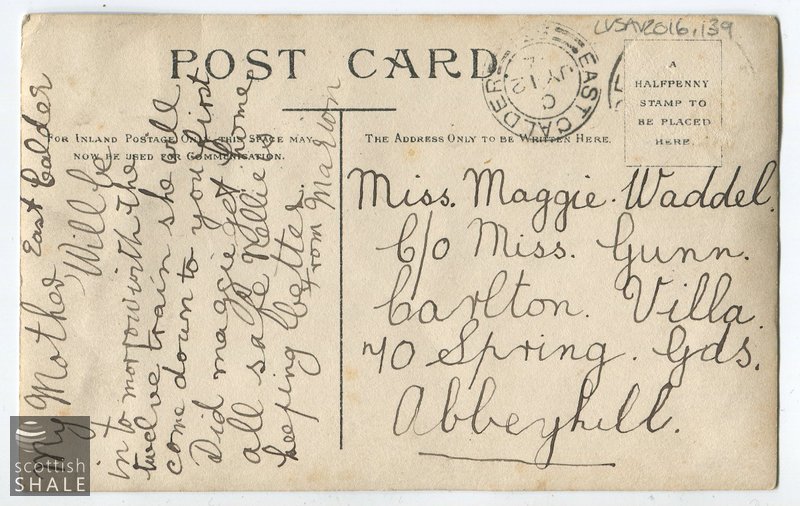 LVSAV2016.139
POST CARD
FOR INLAND POSTAGE ONLY THIS SPACE MAY
NOW BE USED FOR COMMUNICATION.
THE ADDRESS ONLY TO BE WRITTEN HERE.
A
HALFPENNY
STAMP TO
BE PLACED
HERE
EAST CALDER
JY 12
East Calder
My Mother Will be
in to morrow with the
twelve train she will
come down to you first
Did maggie get home
all safe Nellie is
keeping better.
From Marion
Miss. Maggie. Waddel.
C/o Miss. Gunn.
Carlton. Villa.
70 Spring. Gds.
Abbeyhill.
scottish
SHALE